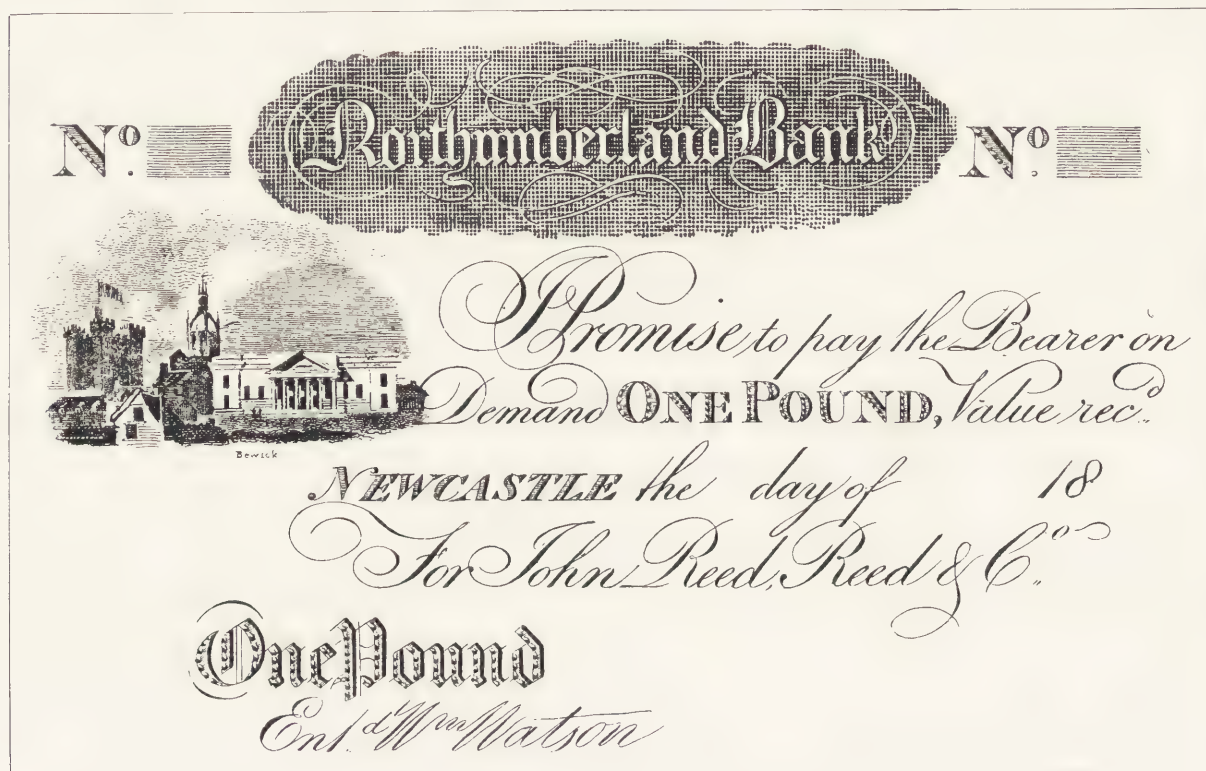 Nº. Northumberland Bank Nº.
I Promise to pay the Bearer on
Demand ONE POUND, Value recd.
Bewick
NEWCASTLE the day of 18
For John Reed, Reed & Co.
One Pound
Entd. Wm Watson